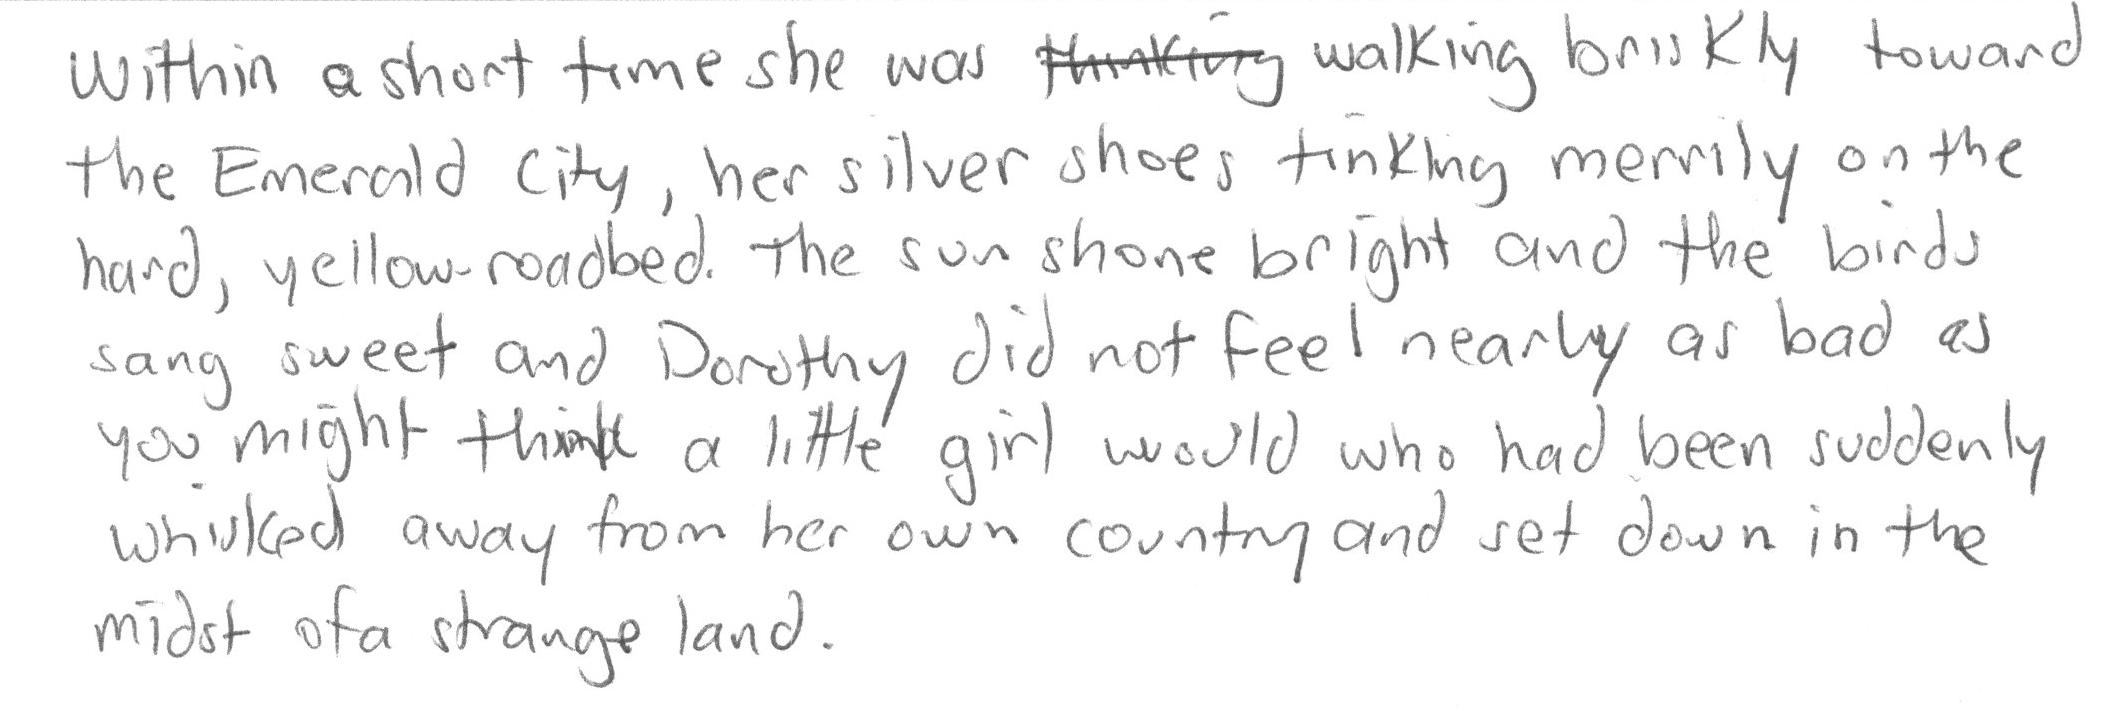 Within a short time she was thinking walking briskly toward
the Emerald City, her silver shoes tinkling merrily on the
hard, yellow-roadbed. The sun shone bright and the birds
sang sweet and Dorothy did not feel nearly as bad as
you might think a little girl would who had been suddenly
whisked away from her own country and set down in the
midst of a strange land.